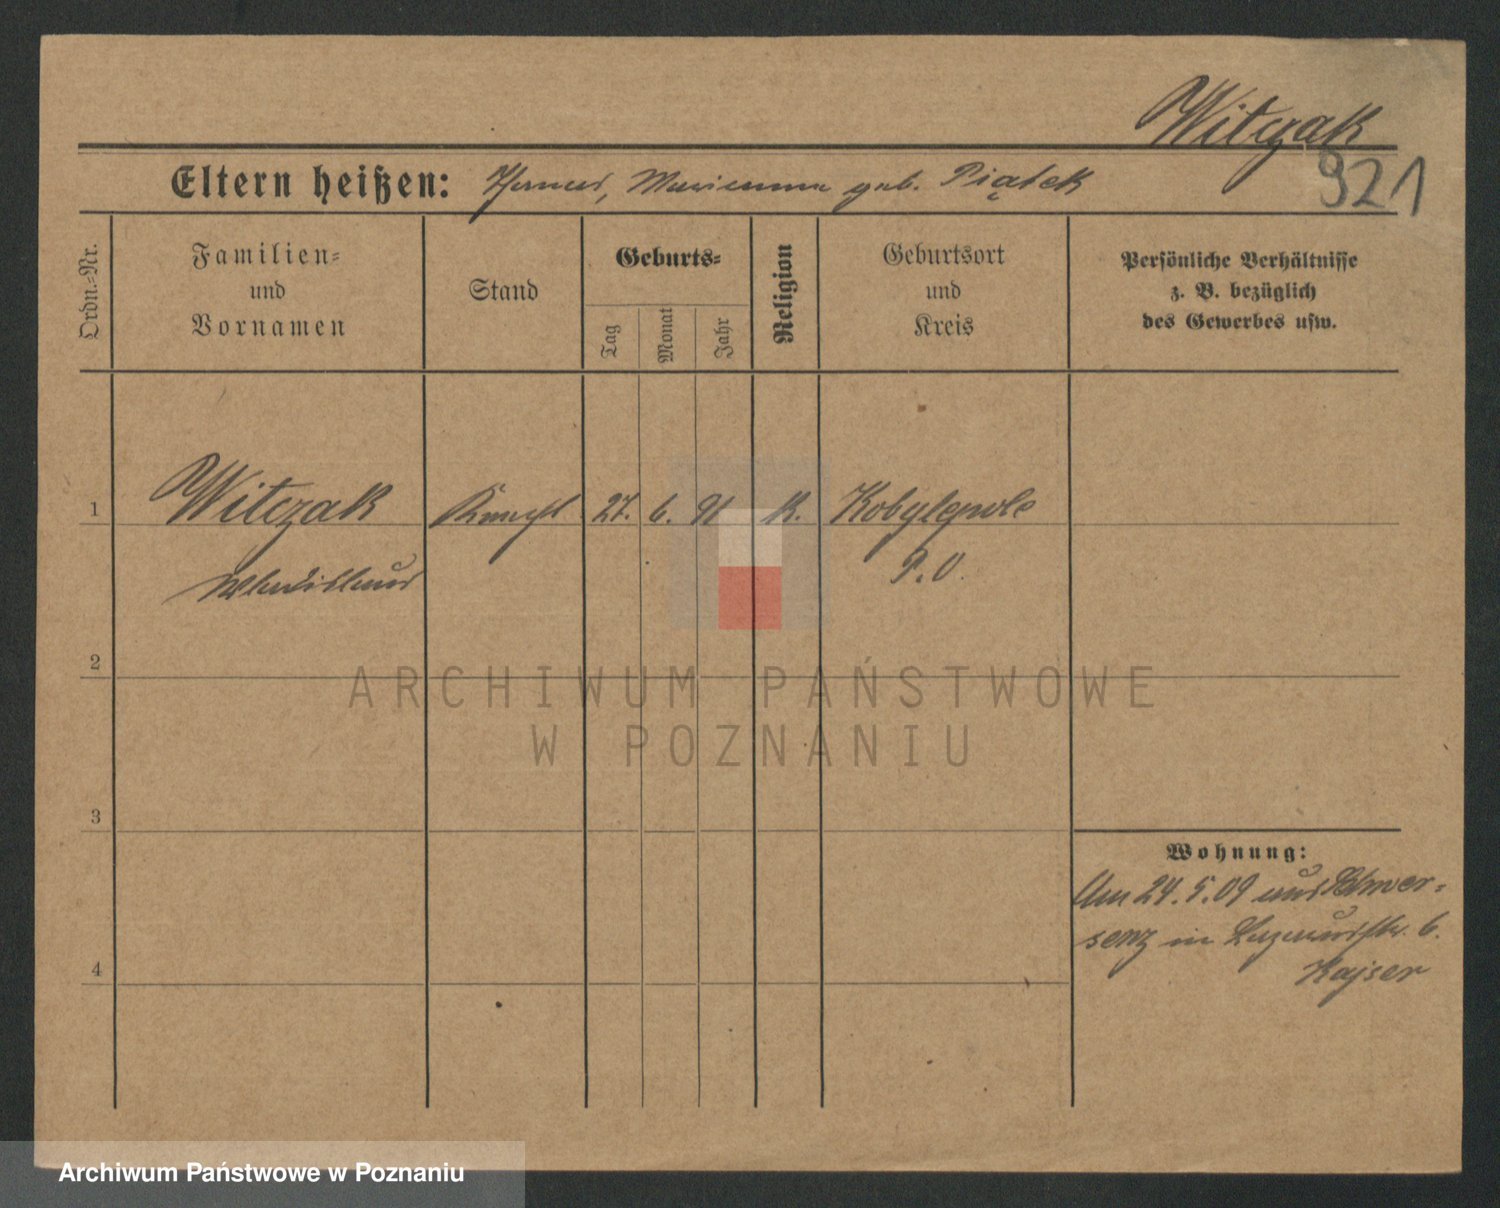 Witczak
921
Eltern heißen: Ignaz, Marianna geb. Piątek
Ordn.-Nr.
Familien-
und
Vornamen
Stand
Geburts-
Tag
Monat
Jahr
Religion
Geburtsort
und
Kreis
Persönliche Verhältnisse
z. B. bezüglich
des Gewerbes usw.
1 Witczak Knecht 27. 6. 91 K. Kobylepole
Wladislaus P. O.
2
ARCHIWUM PAŃSTWOWE
W POZNANIU
3
Wohnung:
Am 24.5.09 aus Schwer-
senz in 6.
4
Kajser
Archiwum Państwowe w Poznaniu